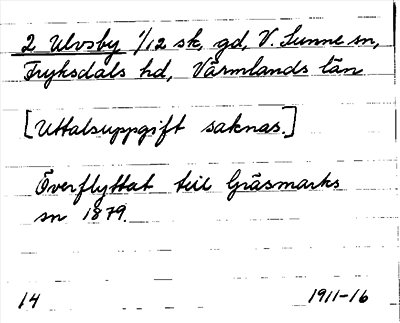 2 Ulvsby 1/12 sk, gd, V. Sunne sn,
Fryksdals hd, Värmlands län
[Uttalsuppgift saknas.]
Överflyttat till Gräsmarks
sn 1879.
14 1911-16